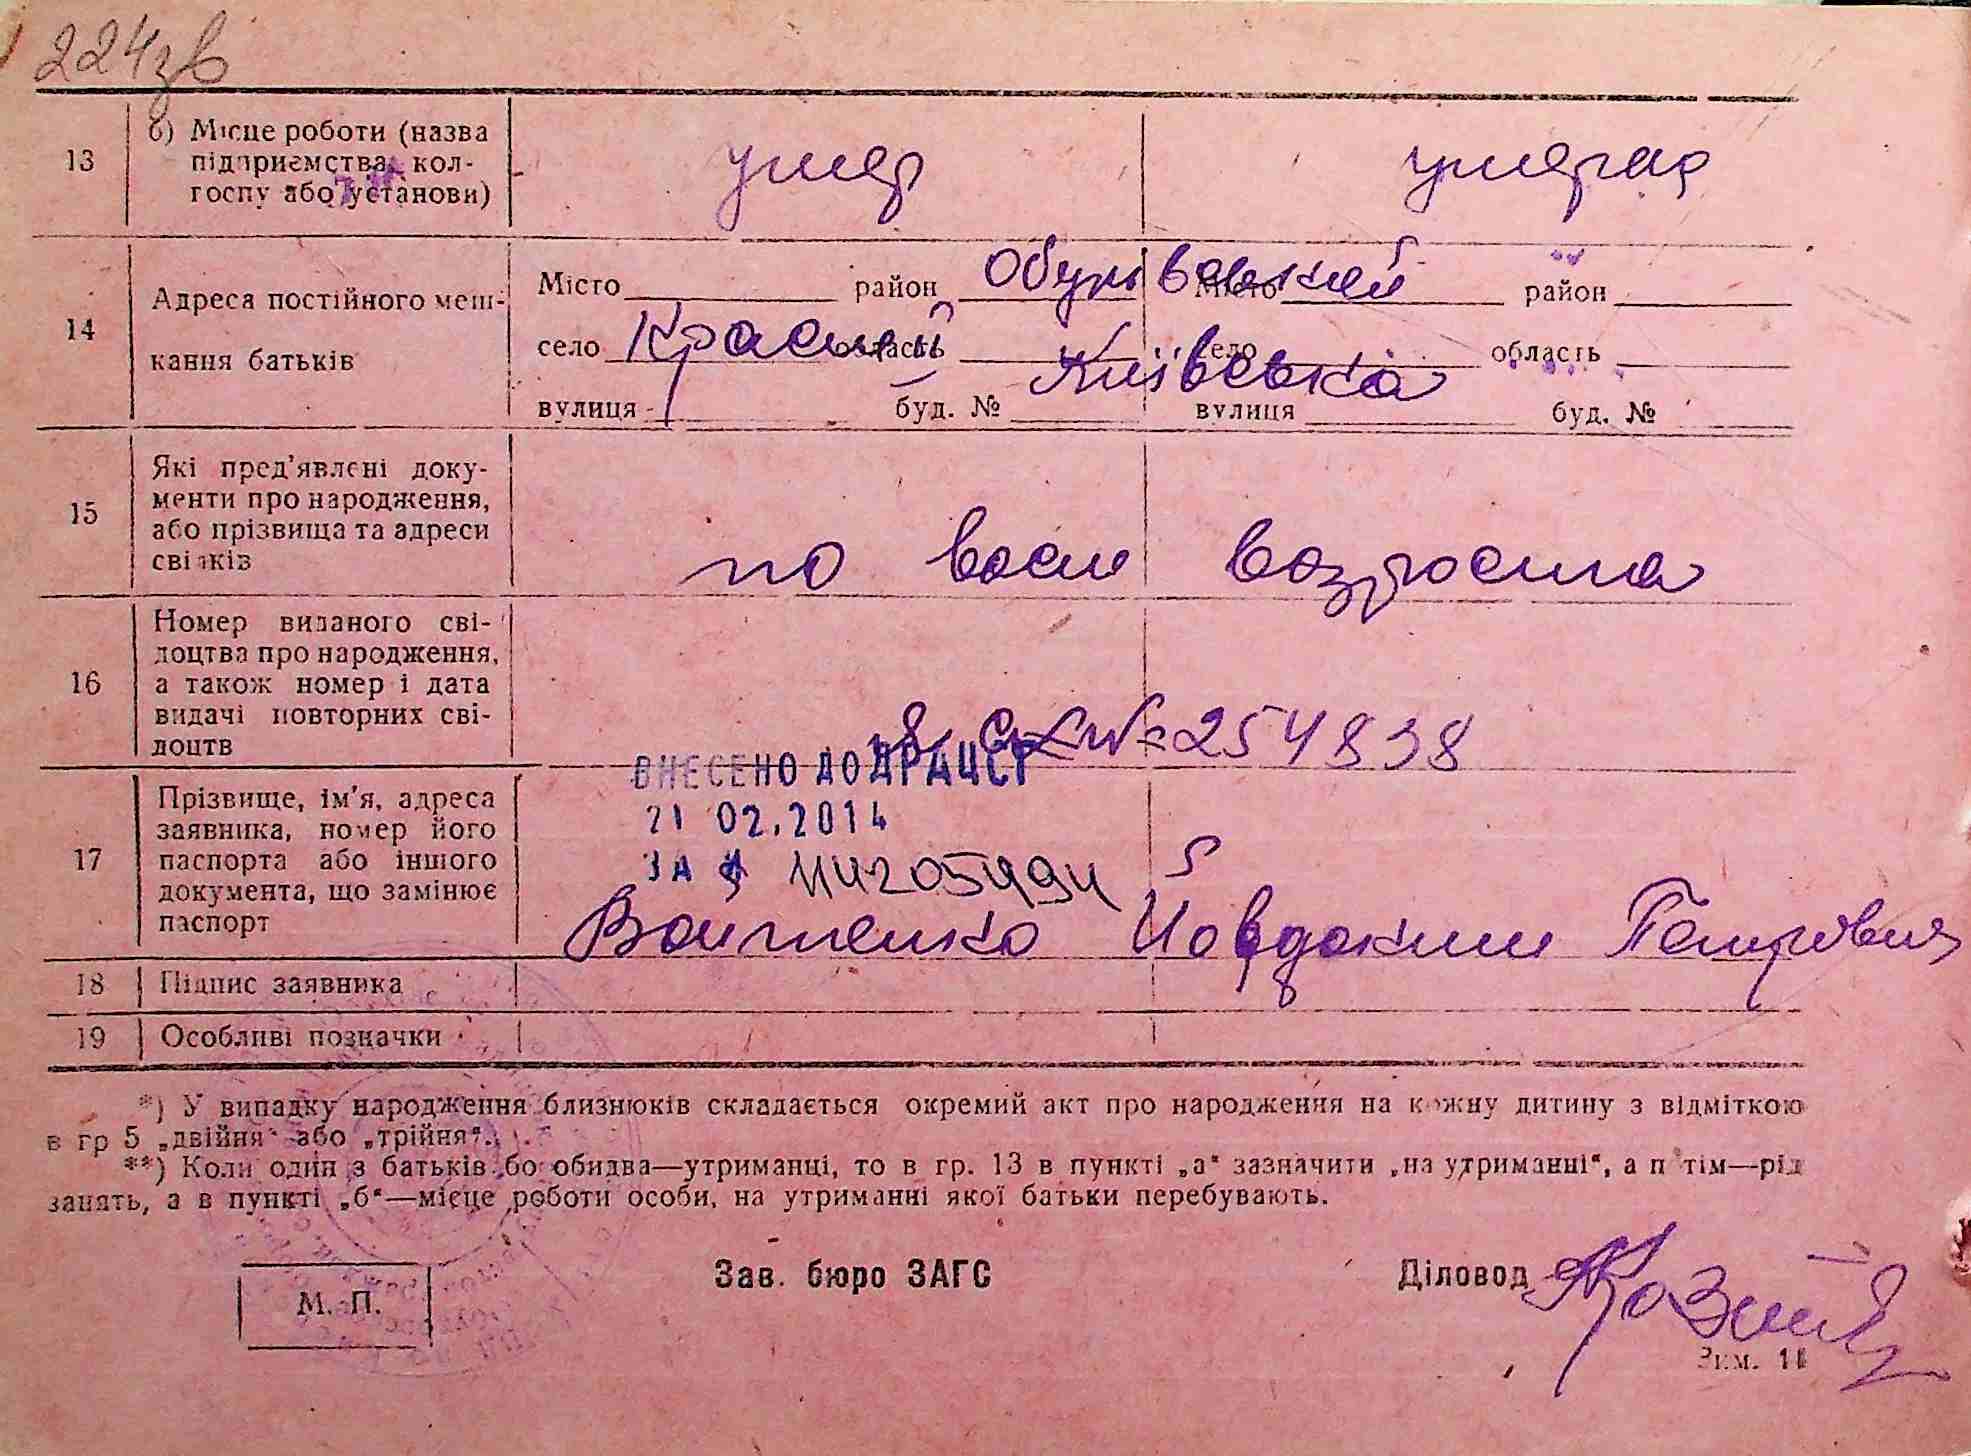 224зв
13 б) Місце роботи (назва
підприємства, кол-
госпу або установи)
умер умерла
14 Адреса постійного меш-
кання батьків
Місто район Обухівський Місто район
село Красне область Київська село область
вулиця буд. № вулиця буд. №
15 Які пред'явлені доку-
менти про народження,
або прізвища та адреси
свідків
по восм возроста
16 Номер виданого сві-
доцтва про народження,
а також номер і дата
видачі повторних сві-
доцтв
№ 254838
ВНЕСЕНО ДО ДРАЦСГ
21 02.2014
ЗА №
17 Прізвище, ім'я, адреса
заявника, номер його
паспорта або іншого
документа, що замінює
паспорт
Войтенко Йовдоким Петрович
18 Підпис заявника
19 Особливі позначки
*) У випадку народження близнюків складається окремий акт про народження на кожну дитину з відміткою
в гр 5 „двійня" або „трійня".
**) Коли один з батьків бо обидва—утриманці, то в гр. 13 в пункті „а" зазначити „на утриманні", а п тім—рід
занять, а в пункті „б"—місце роботи особи, на утриманні якої батьки перебувають.
М. П.
Зав. бюро ЗАГС
Діловод
Зкм. 11